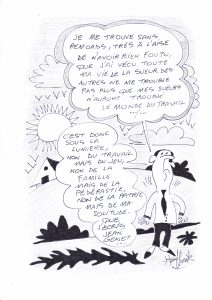 JE ME TROUVE SANS
REMORDS, TRÈS A L'AISE
DE N'AVOIR RIEN FOUTU,
QUE J'AI VÉCU TOUTE
MA VIE DE LA SUEUR DES
AUTRES NE ME TROUBLE
PAS PLUS QUE MES SUEURS
N'AURONT TROUBLÉ
LE MONDE DU TRAVAIL
C'EST DONC
SOUS LA
LUMIÈRE,
NON DU TRAVAIL
MAIS DU JEU,
NON DE LA
FAMILLE
MAIS DE LA
PÉDÉRASTIE,
NON DE LA PATRIE
MAIS DE MA
SOLITUDE.
QUE
J'ÉCRIS,
JEAN
GENET